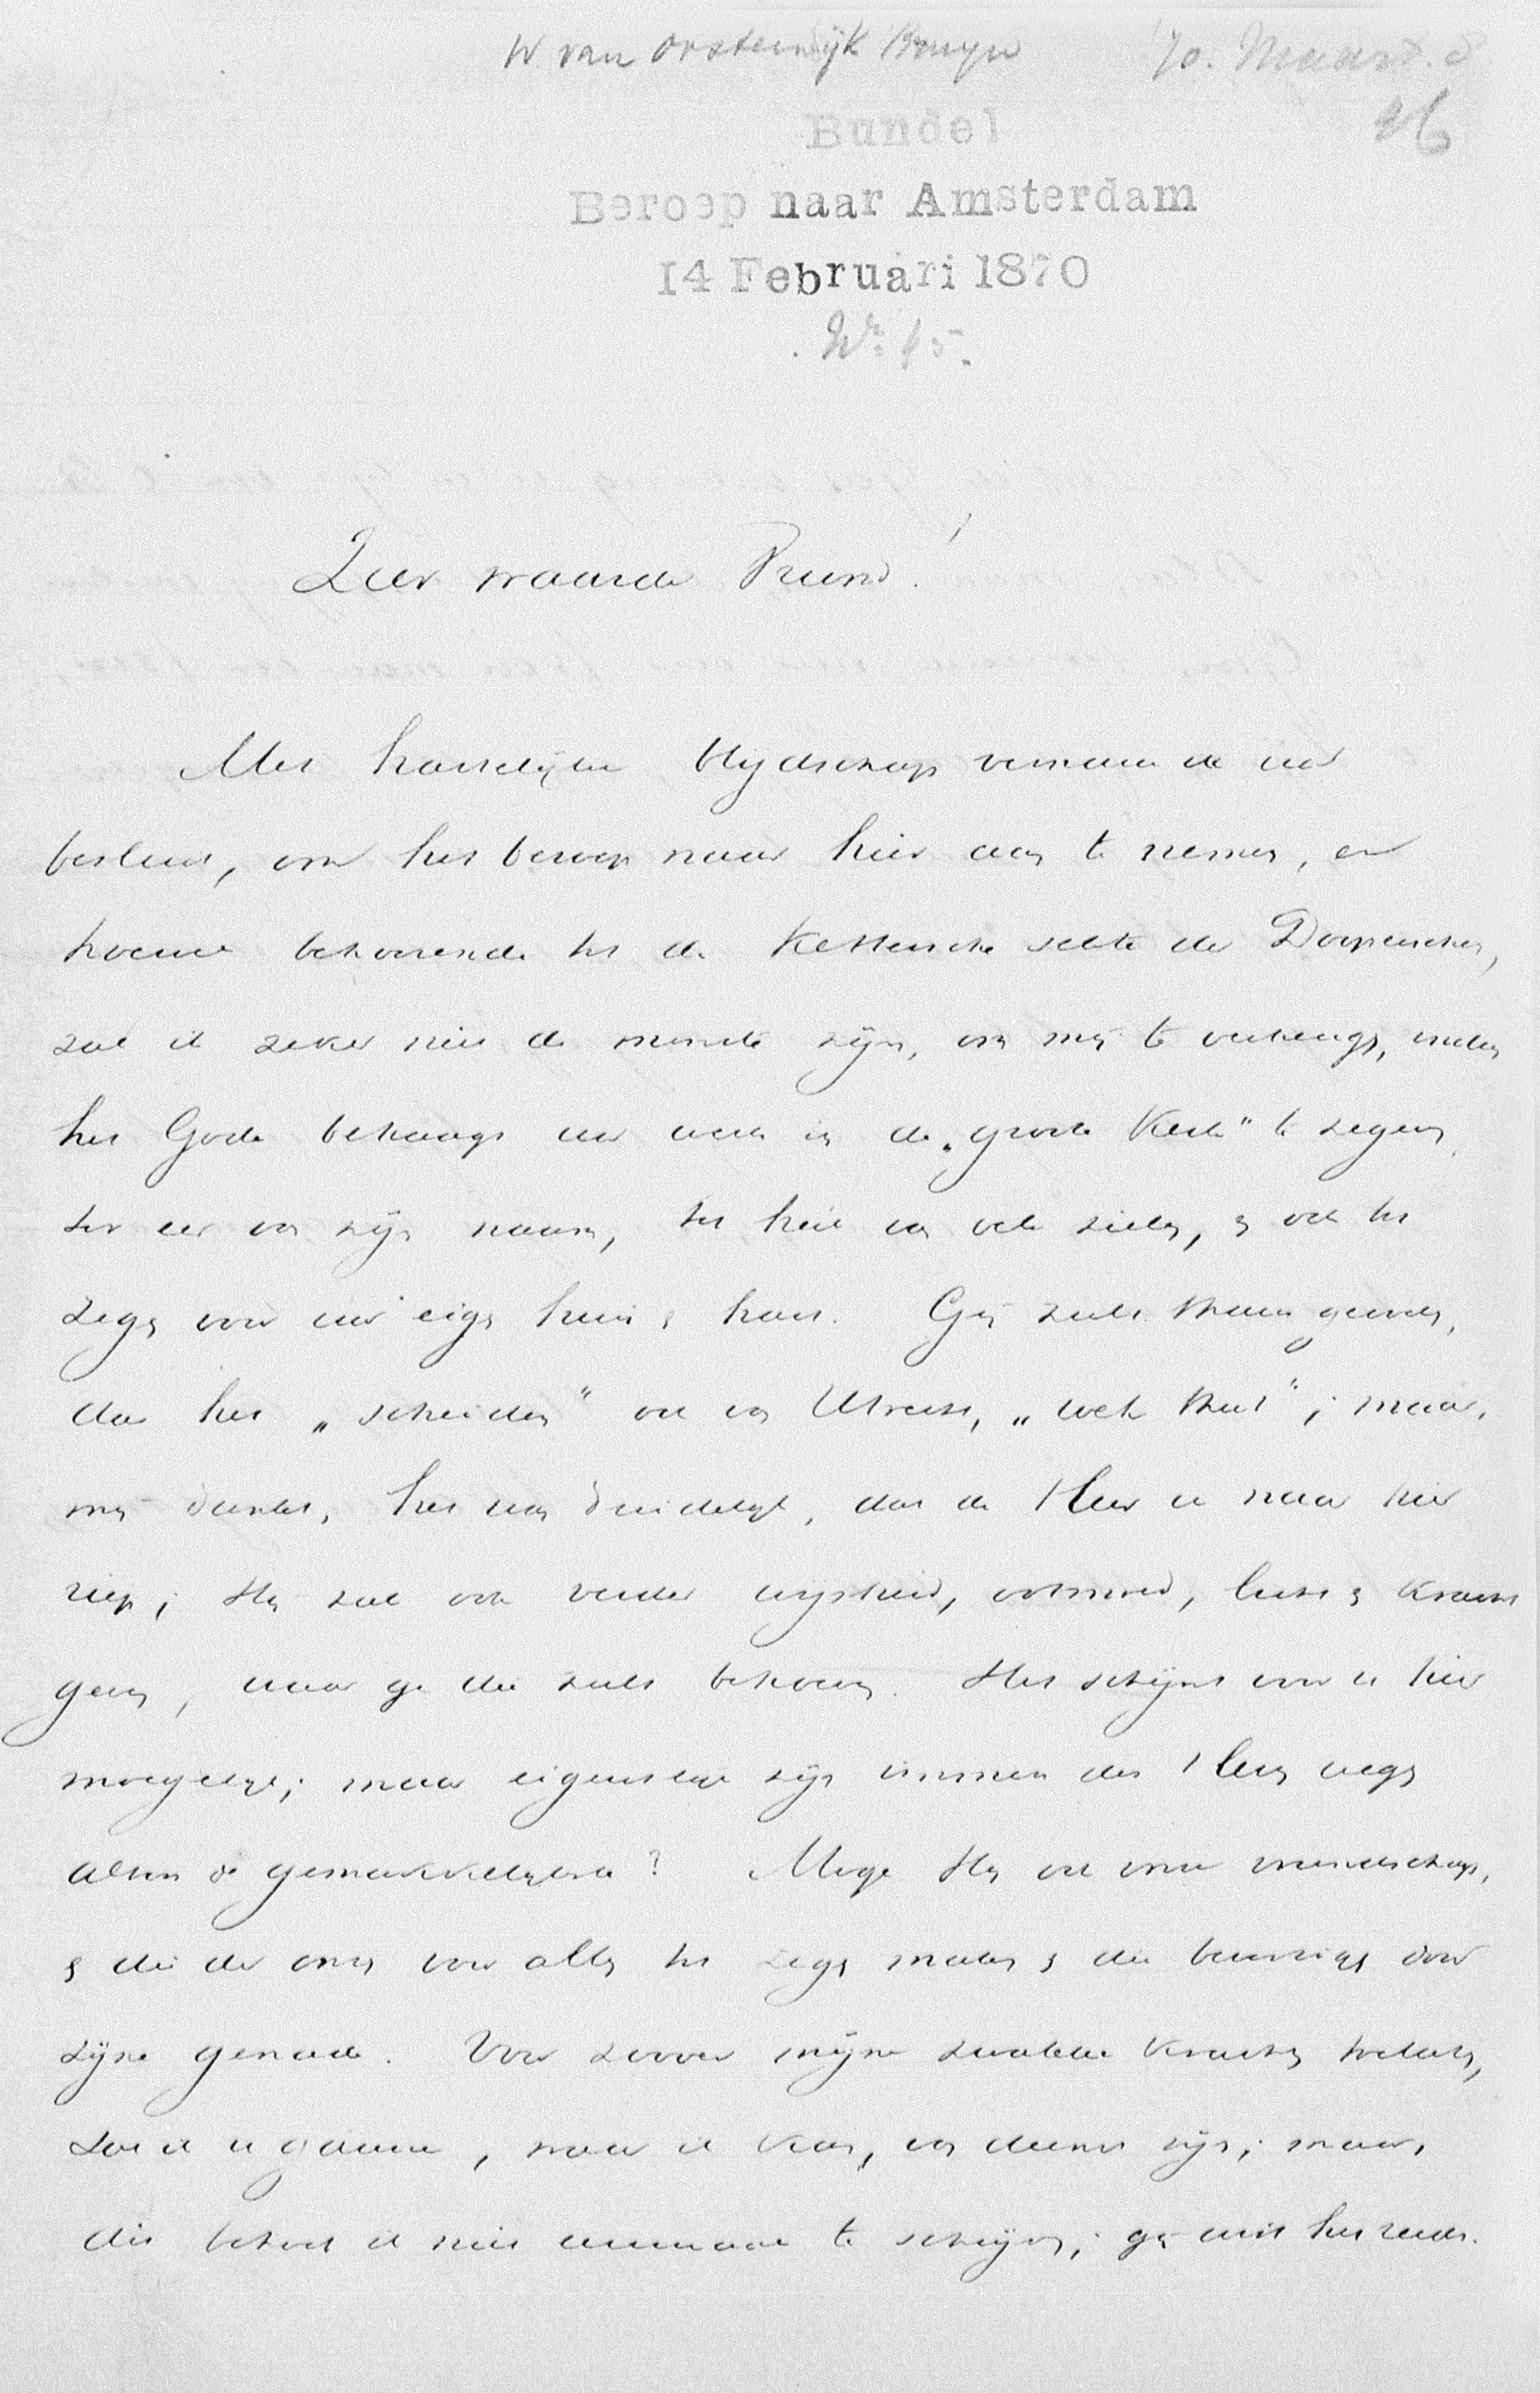 W van Oosterwijk Bruyn 70. Maart. d
26
Bundel
Beroep naar Amsterdam
14 Februari 1870
No 15.
Zeer waarde Vriend!
Met hartelijke blijdschap vernam ik uw
besluit, om het beroep naar hier aan te nemen, en
hoewel behoorende tot de Kettersche sekte der Doopersche,
zal ik zeker niet de minste zijn, om mij te verheugen, indien
het Gode behaagt uw werk in de „groote Kerk" te zegenen
ter eer van zijn naam, tot heil van vele zielen, en ook tot
zegen voor uw eigen huis en hart. Gij zult thans gevoelen,
dat het „scheiden" ook van Utrecht, „wee thut"; maar,
mij dunkt, het was duidelijk, dat de Heer u naar hier
riep; Hij zal ook verder wijsheid, ootmoed, lust en kracht
geven, waar ge die zult behoeven. Het schijnt voor u hier
moeyelijk; maar eigenlijk zijn immers des Heeren wegen
altoos de gemakkelijkste? Moge Hij ook onze vriendschap,
en die der onzen voor allen tot zegen maken en die bevestigen door
zijne genade. Voor zoover mijne zwakke krachten toelaten,
zou ik u gaarne, waar ik kan, van dienst zijn; maar,
dit behoef ik niet eenmaal te schrijven; gij wist het reeds.